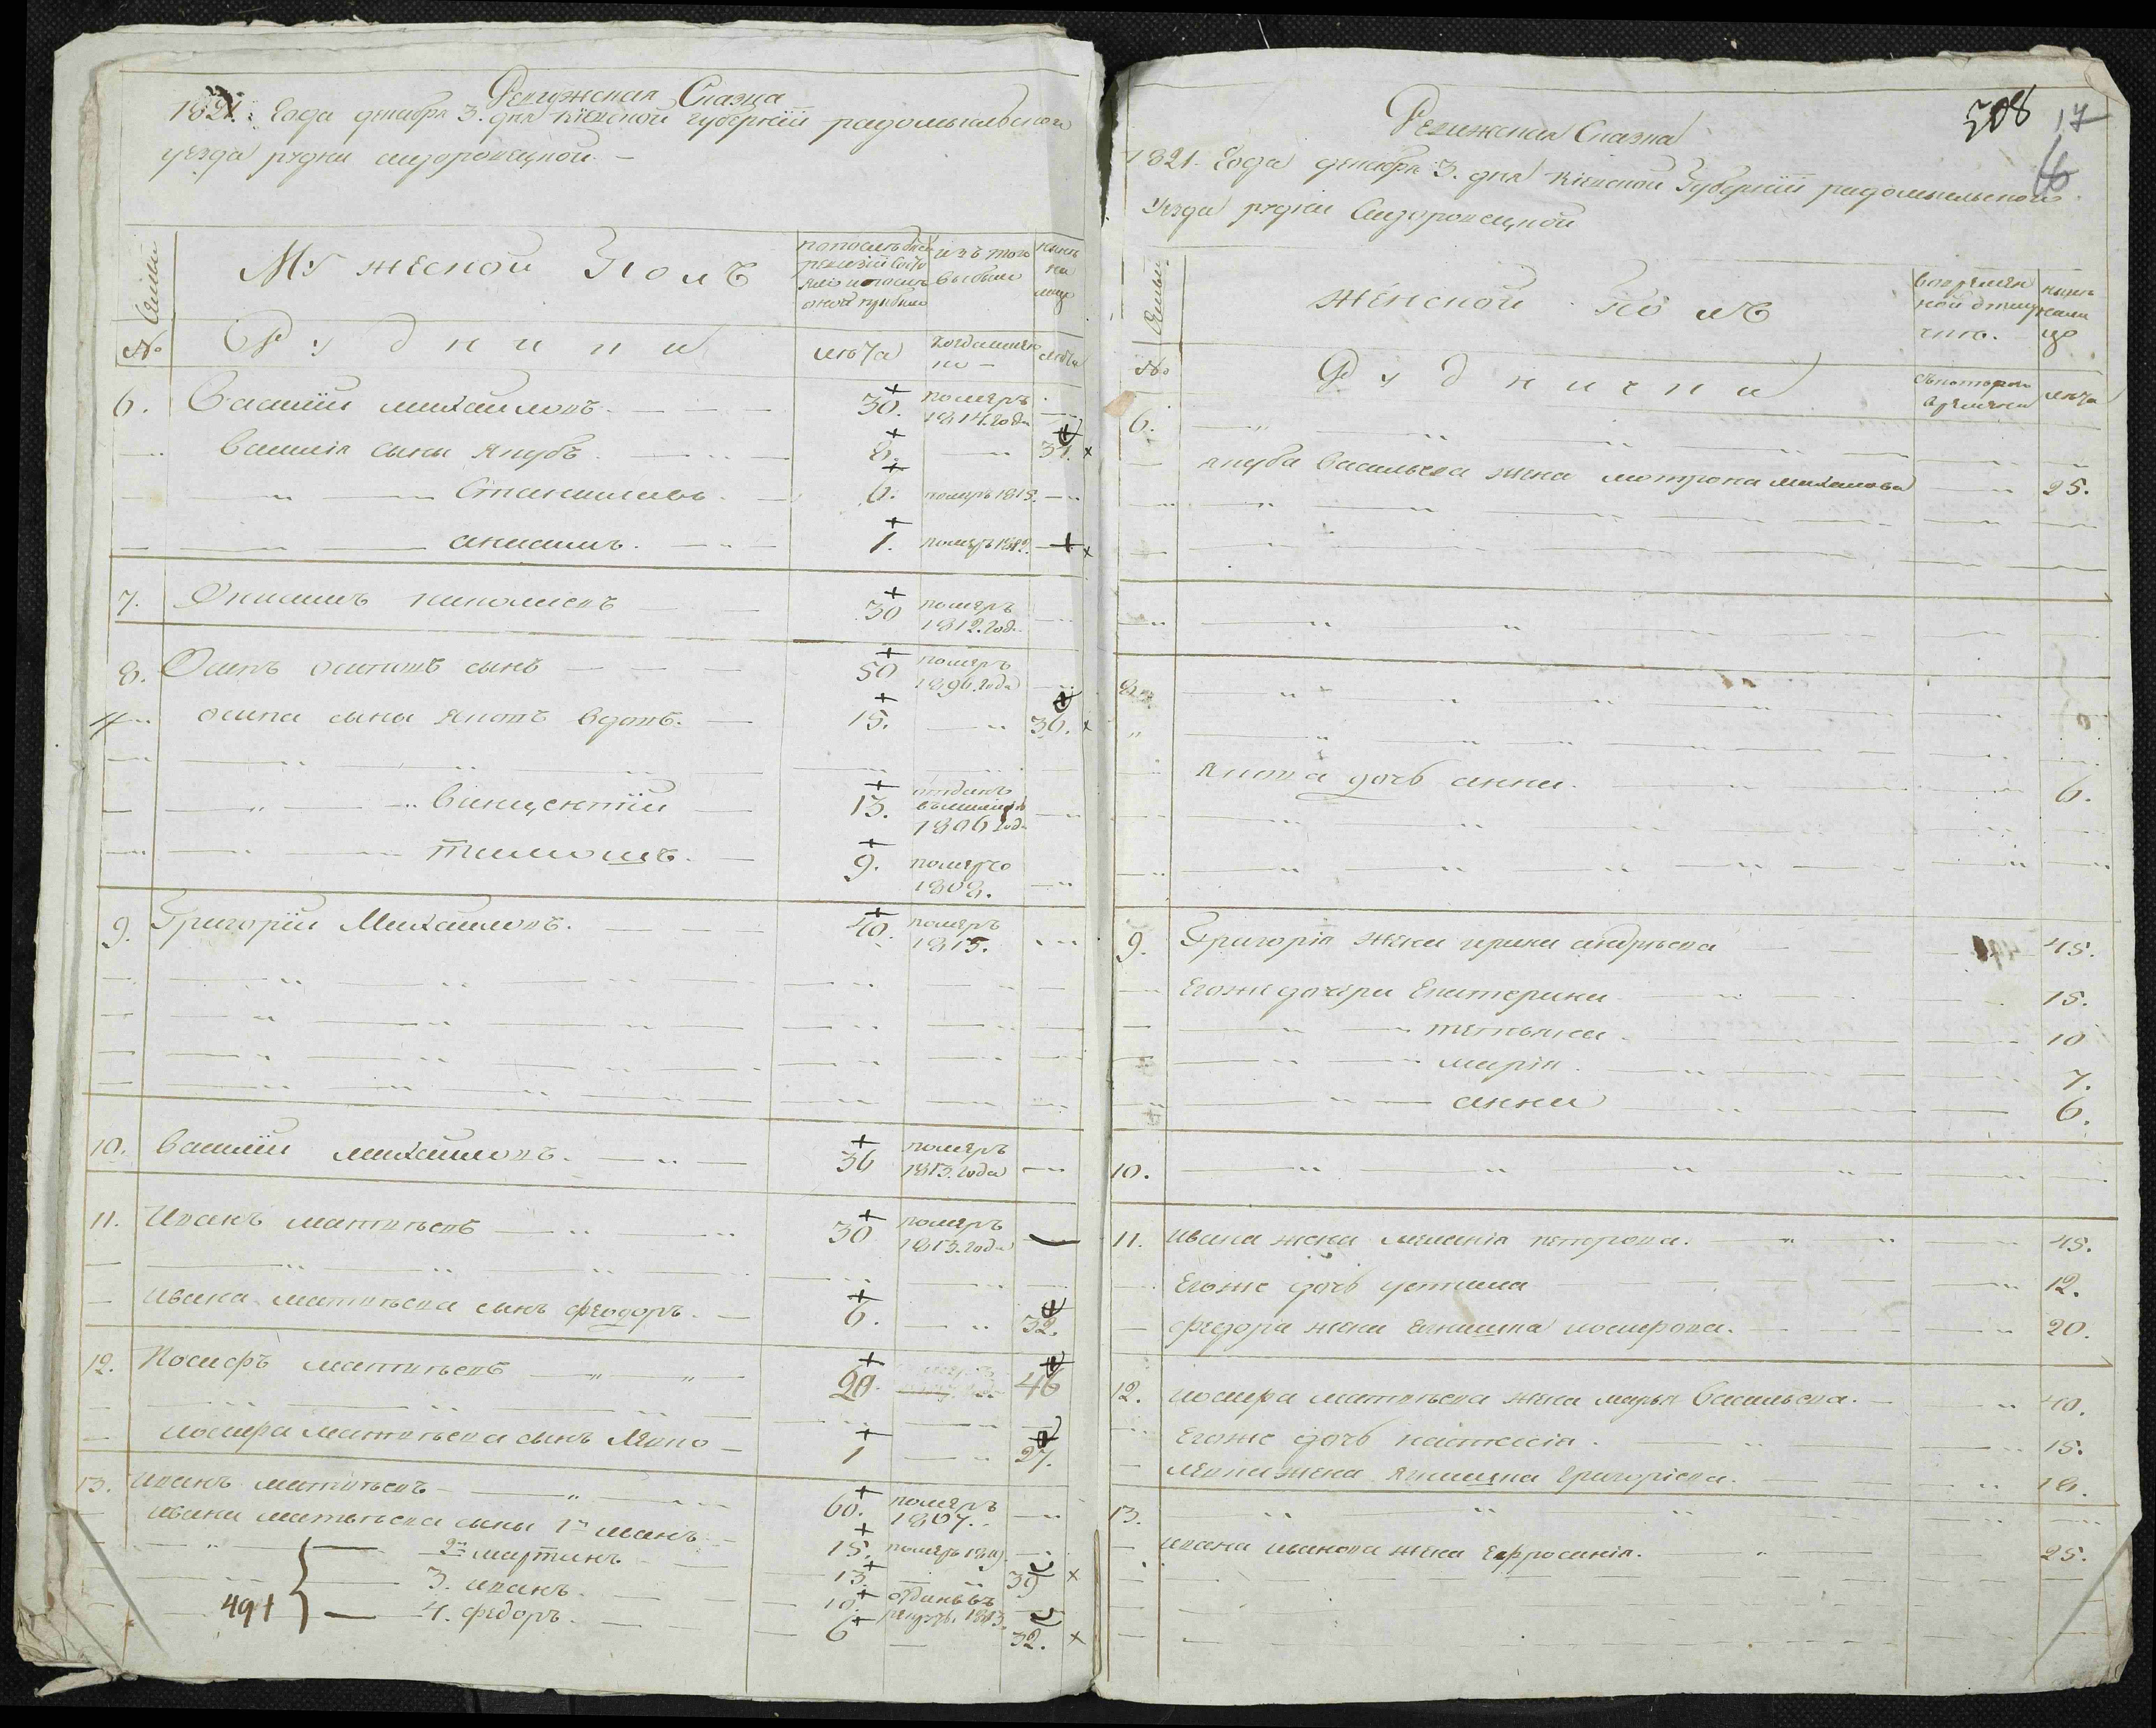 Ревижская Сказка
1821. Года декабря 3. дня Кіевской губерніи радомысльского
уезда рудки сидоровецкой. –
Семьи
Мужеской Полъ
изъ того
выбыли
ныне
на
лицо
№
Рудники
лѣта
когда именно
лѣта
6. Василій михайловъ. 30. померъ 1814. года
Василія сыны якубъ. 8. 31. x
Станиславъ. 6. померъ 1815.
анисимъ. 1. померъ 1812. x
7. Онисимъ николаевъ 30 померъ 1812. год.
8. Осипъ осиповъ сынъ 50 померъ года
осипа сыны яковъ вдовъ. 15. 36. x
Винцентій 13. отданъ 1806 год.
тимошъ. 9. померъ 1808.
9. Григорій Михайловъ. 40. померъ 1815.
10. Василій михайловъ. 36 померъ 1813. года
11. Иванъ матвѣевъ 30 померъ 1813. года
Ивана матвѣева сынъ феодоръ. 6. 32.
12. Иосифъ матвѣевъ 20. 46
иосифа матвѣева сынъ Марко 1 27.
13. иванъ матвѣевъ 60. померъ 1807.
ивана матвѣева сыны 1й иванъ 15. померъ
2й мартинъ 13. 39 x
3. иванъ. 10. отданъ въ рекруты 1813.
4. федоръ. 6 32. x
491
508
17
16
Ревижская Сказка
1821. Года декабря 3. дня Кіевской Губерніи радомысльской
Уезда рудки Сидоровецкой
Семьи
Женской полъ
во временной отлучке.
ныне
на лицо
№
Рудники
съ котораго времени
лѣта
6.
якуба Васильева жена мотрона михайлова 25.
8.
якова дочь анна. 6.
9. Григорія жена ирина андрѣева 45.
Егоже дочери Екатерина 15.
тетьяна. 10
марія. 7.
анна 6.
10.
11. ивана жена меланія петрова. 45.
Егоже дочь устина 12.
федора жена иосифова. 20.
12. иосифа матвѣева жена марья Васильева. 40.
Егоже дочь настасія. 15.
марка жена григоріева. 18.
13.
ивана иванова жена Ефросинія. 25.